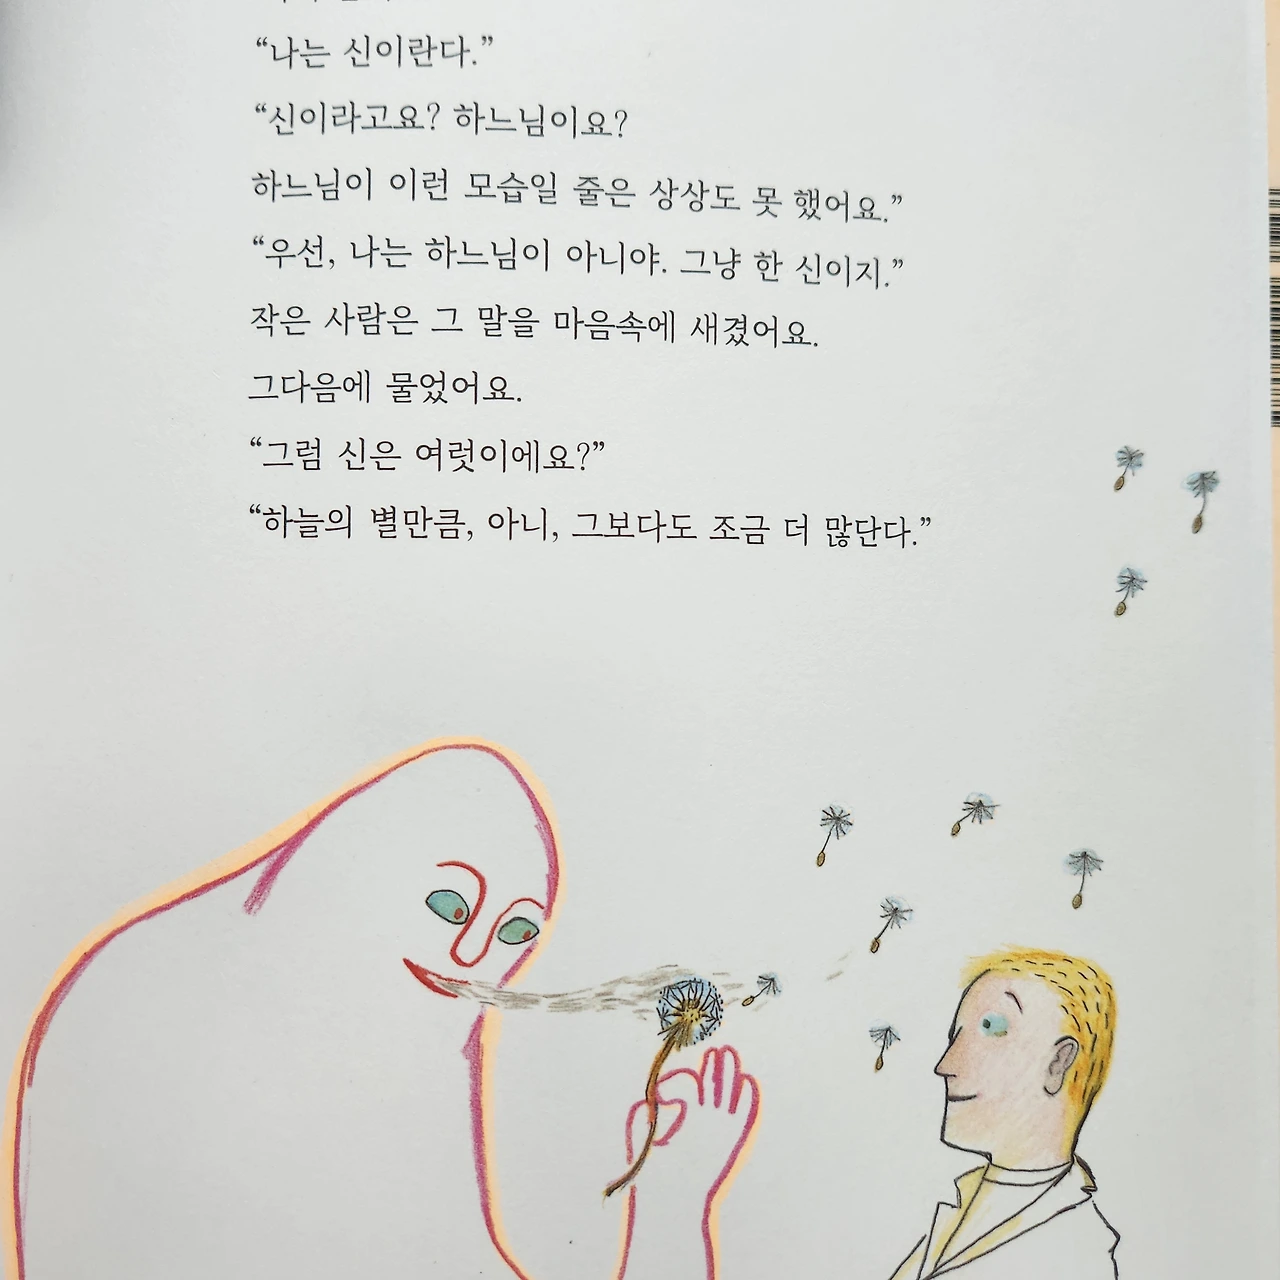 “나는 신이란다.”
“신이라고요? 하느님이요?
하느님이 이런 모습일 줄은 상상도 못 했어요.”
“우선, 나는 하느님이 아니야. 그냥 한 신이지.”
작은 사람은 그 말을 마음속에 새겼어요.
그다음에 물었어요.
“그럼 신은 여럿이에요?”
“하늘의 별만큼, 아니, 그보다도 조금 더 많단다.”